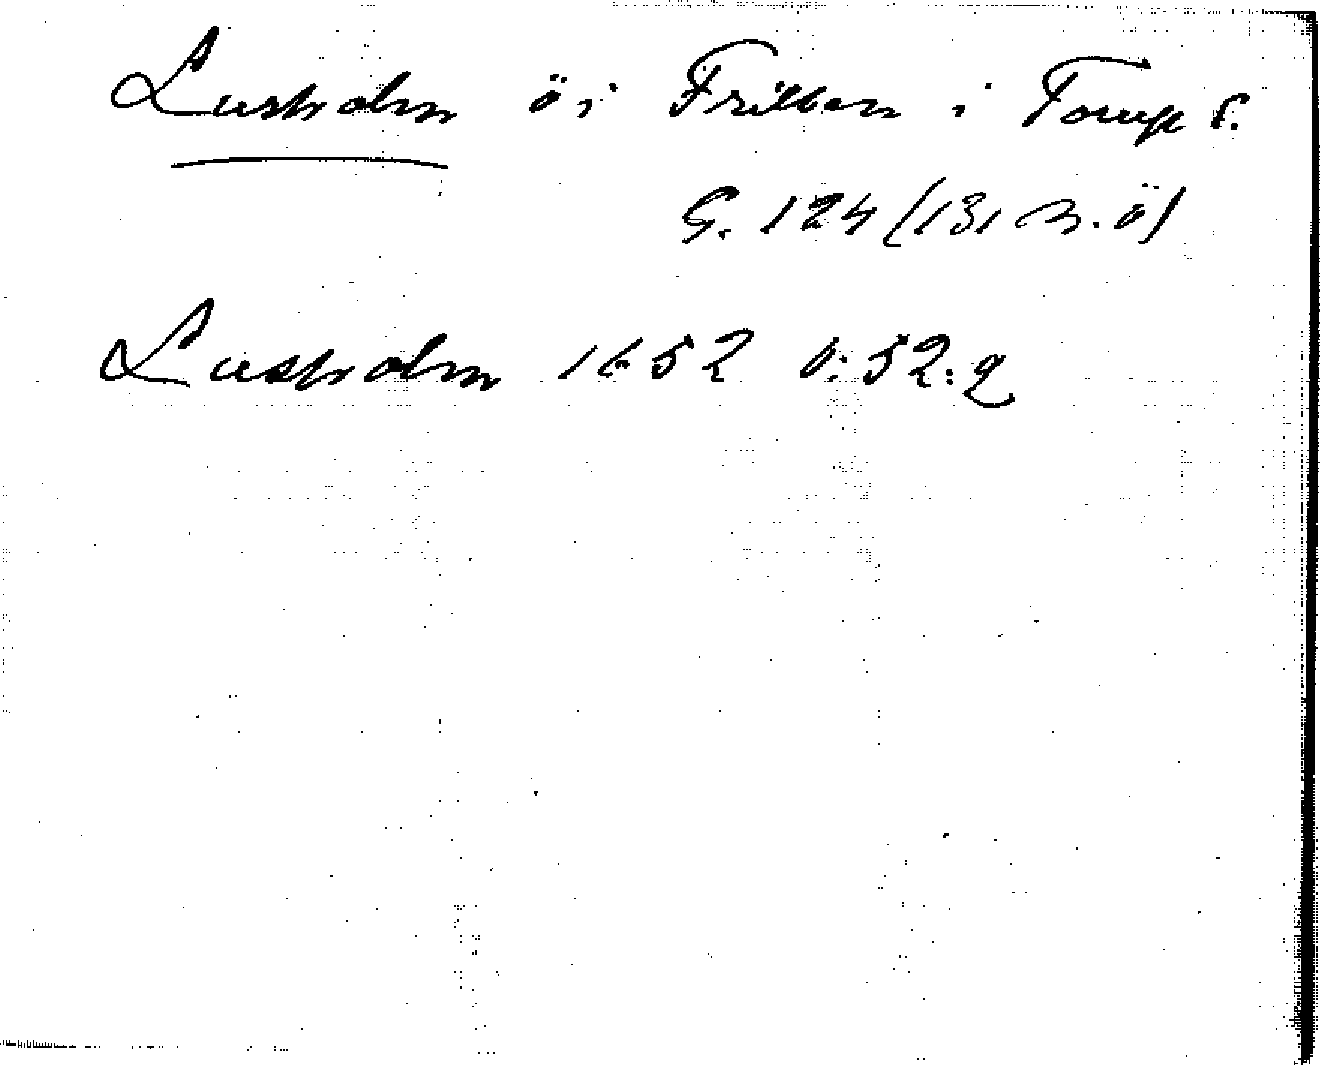 Lusholm ö i Frillen i Torup s.
G. 124 (131 m. ö)
Lusholm 1652 0:52:9